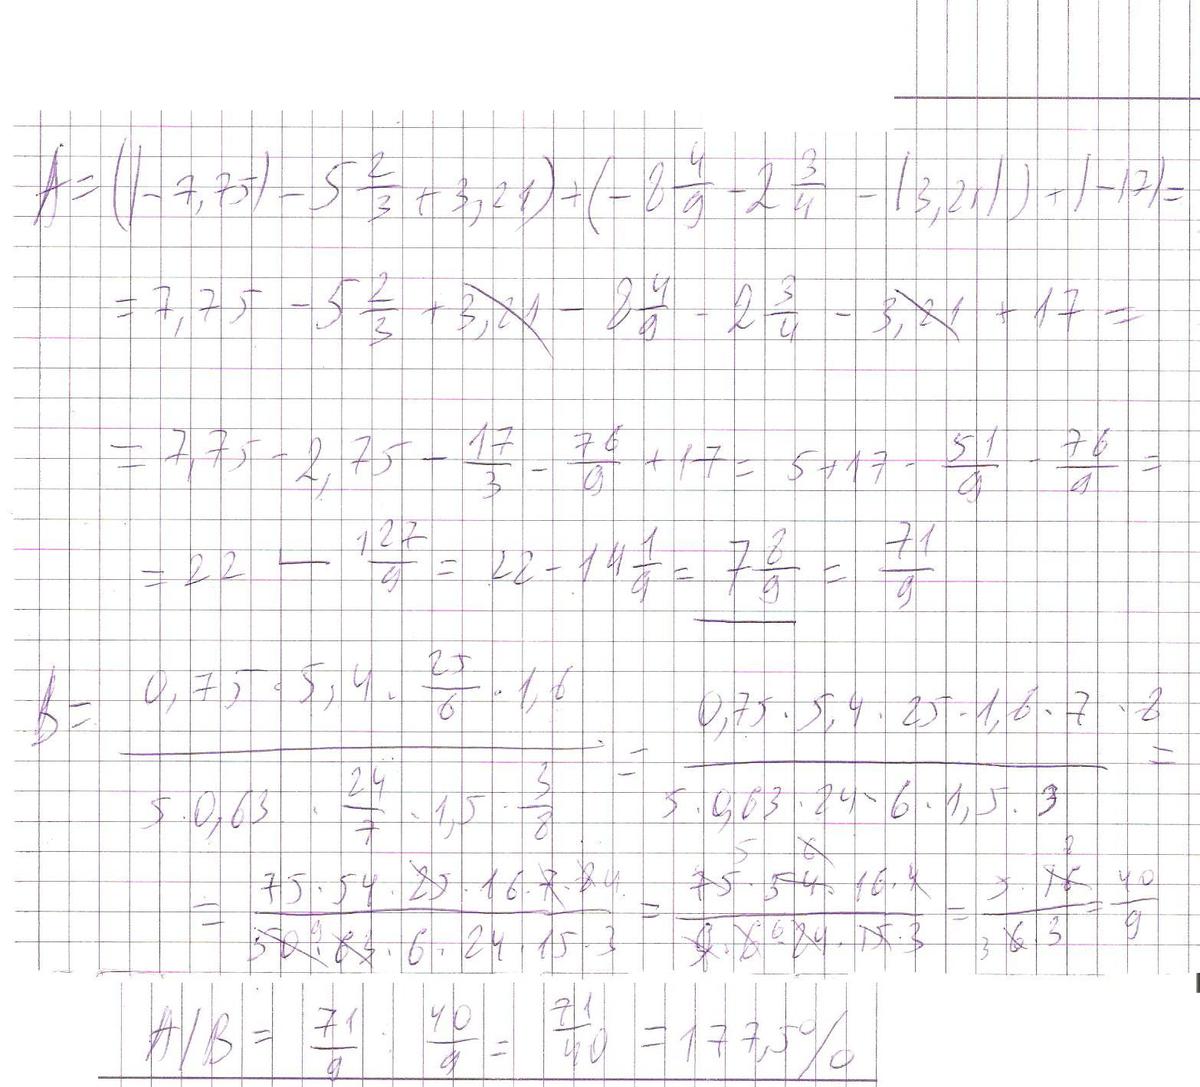 A = (|-7,75| - 5 2/3 + 3,21) + (-8 4/9 - 2 3/4 - |3,21|) + |-17| =
= 7,75 - 5 2/3 + 3,21 - 8 4/9 - 2 3/4 - 3,21 + 17 =
= 7,75 - 2,75 - 17/3 - 76/9 + 17 = 5 + 17 - 51/9 - 76/9 =
= 22 - 127/9 = 22 - 14 1/9 = 7 8/9 = 71/9
B = (0,75 · 5,4 · 25/6 · 1,6) / (5 · 0,63 · 24/7 · 1,5 · 3/8) = (0,75 · 5,4 · 25 · 1,6 · 7 · 8) / (5 · 0,63 · 24 · 6 · 1,5 · 3) =
= (75 · 54 · 25 · 16 · 7 · 8 4) / (50 · 63 9 · 6 · 24 · 15 · 3) = (75 5 · 54 · 16 · 4) / (9 · 6 · 24 6 · 15 · 3) = (5 · 16 8) / (6 3 · 3) = 40/9
A/B = 71/9 : 40/9 = 71/40 = 177,5%